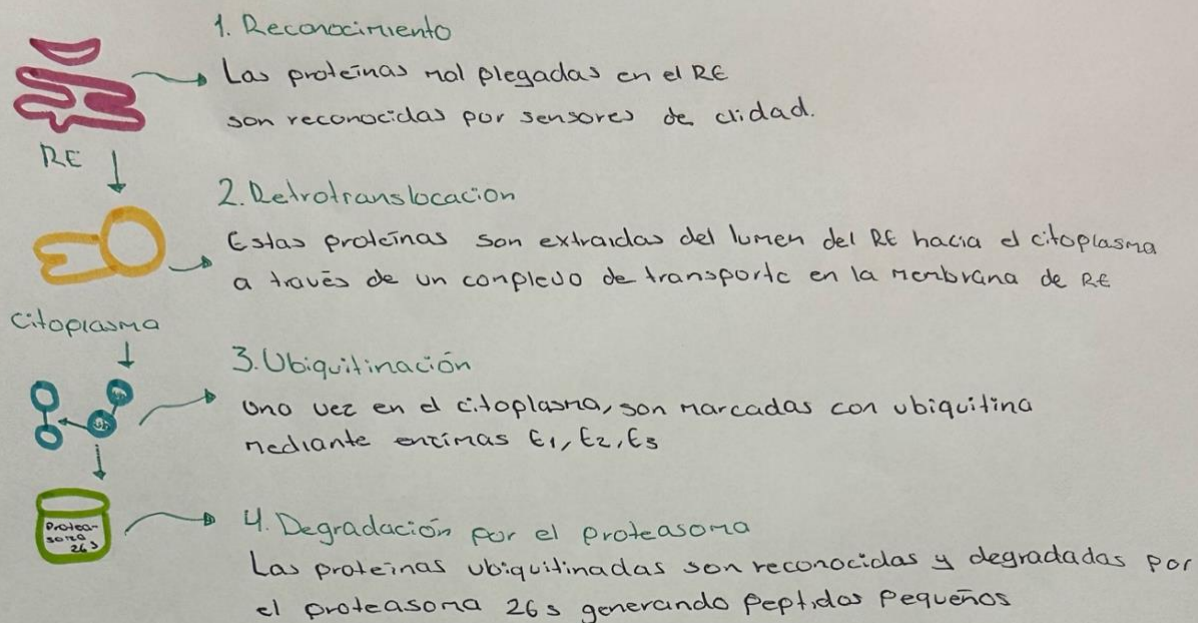 1. Reconocimiento
Las proteínas mal plegadas en el RE
son reconocidas por sensores de clidad.
RE
2. Retrotranslocacion
Estas proteínas son extraidas del lumen del RE hacia el citoplasma
a través de un complejo de transporte en la membrana de RE
Citoplasma
3. Ubiquitinación
Una vez en el citoplasma, son marcadas con ubiquitina
mediante enzimas E1, E2, E3
Ub
Ub
4. Degradación por el proteasoma
Protea-
soma
26s
Las proteínas ubiquitinadas son reconocidas y degradadas por
el proteasoma 26s generando peptidos pequeños